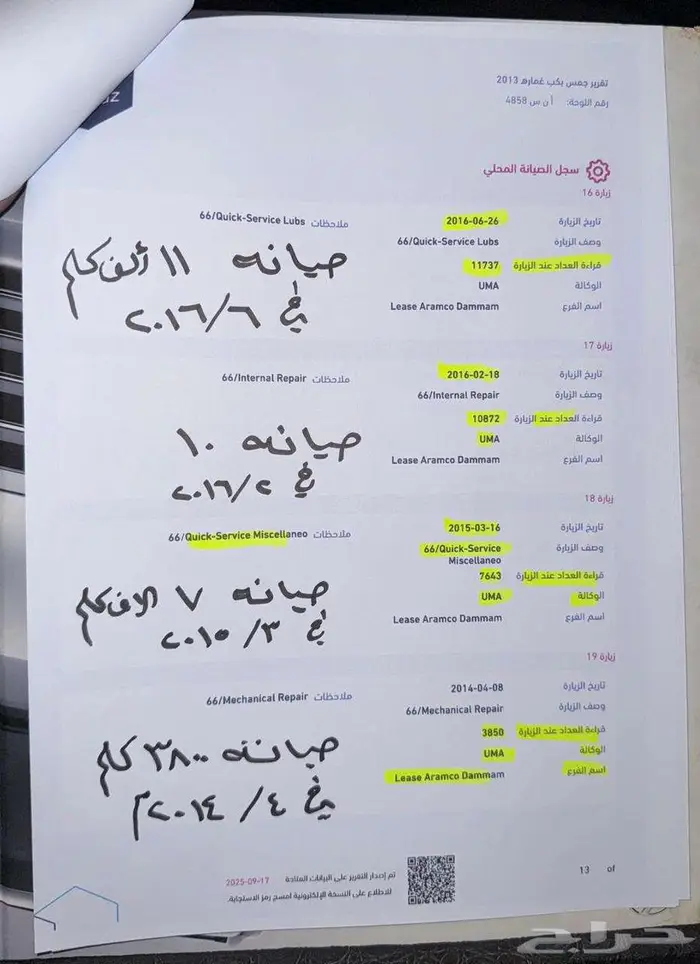 تقرير جمس بكب غماره 2013
رقم اللوحة: أ ن س 4858
سجل الصيانة المحلي
زيارة 16
تاريخ الزيارة 2016-06-26 ملاحظات 66/Quick-Service Lubs
وصف الزيارة 66/Quick-Service Lubs
قراءة العداد عند الزيارة 11737
الوكالة UMA
اسم الفرع Lease Aramco Dammam
صيانه ١١ ألف كلم
في ٢٠١٦/٦
زيارة 17
تاريخ الزيارة 2016-02-18 ملاحظات 66/Internal Repair
وصف الزيارة 66/Internal Repair
قراءة العداد عند الزيارة 10872
الوكالة UMA
اسم الفرع Lease Aramco Dammam
صيانه ١٠
في ٢٠١٦/٢
زيارة 18
تاريخ الزيارة 2015-03-16 ملاحظات 66/Quick-Service Miscellaneo
وصف الزيارة 66/Quick-Service
Miscellaneo
قراءة العداد عند الزيارة 7643
الوكالة UMA
اسم الفرع Lease Aramco Dammam
صيانه ٧ الاف كلم
في ٢٠١٥/٣
زيارة 19
تاريخ الزيارة 2014-04-08 ملاحظات 66/Mechanical Repair
وصف الزيارة 66/Mechanical Repair
قراءة العداد عند الزيارة 3850
الوكالة UMA
اسم الفرع Lease Aramco Dammam
صيانه ٣٨٠٠ كلم
في ٢٠١٤/٤م
تم إصدار التقرير على البيانات المتاحة 2025-09-17
للاطلاع على النسخة الإلكترونية امسح رمز الاستجابة.
13 of
حراج